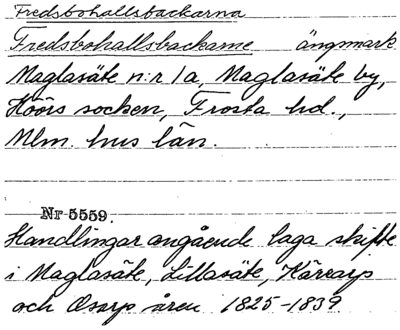 Fredsbohallsbackarna
Fredsbohallsbackarne ängmark
Maglasäte n:r 1a, Maglasäte by,
Höörs socken, Frosta hd.,
Mlm. hus län.
Nr 5559.
Handlingar angående laga skifte
i Maglasäte, Lillasäte, Kärrarp
och Osarp åren 1825-1839